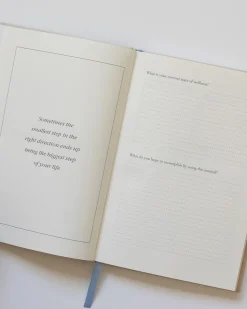 Sometimes the
smallest step in the
right direction ends up
being the biggest step
of your life
What is your current state of wellness?
What do you hope to accomplish by using this journal?